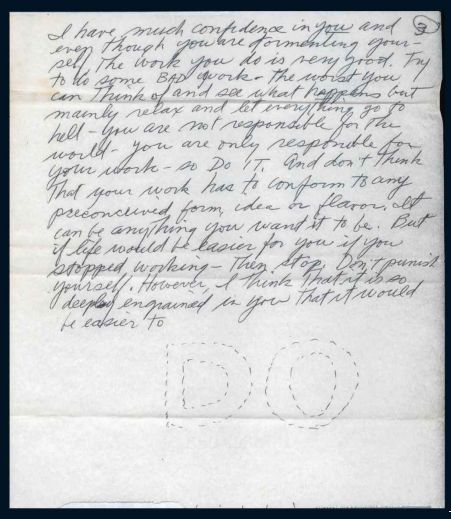 3
I have much confidence in you and
even though you are tormenting your-
self, the work you do is very good. Try
to do some BAD work - the worst you
can think of and see what happens but
mainly relax and let everything go to
hell - you are not responsible for the
world - you are only responsible for
your work - so Do IT. And don't think
that your work has to conform to any
preconceived form, idea or flavor. It
can be anything you want it to be. But
if life would be easier for you if you
stopped working - then stop. Don't punish
yourself. However, I think that it is so
deeply engrained in you that it would
be easier to
DO